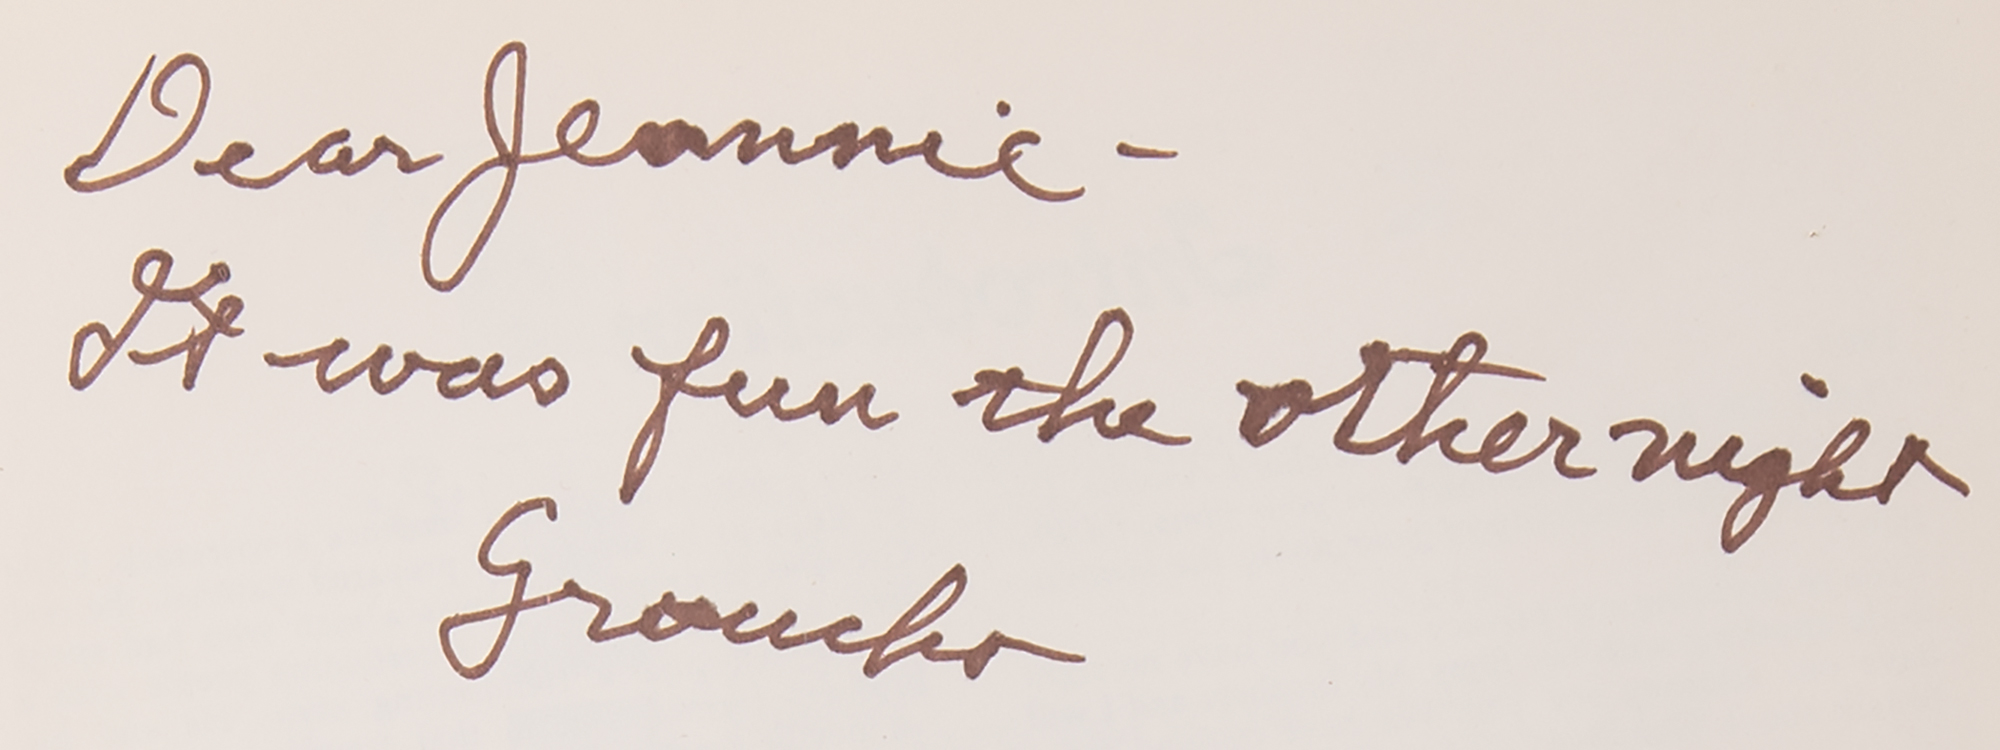 Dear Jeannie -
It was fun the other night
Groucho